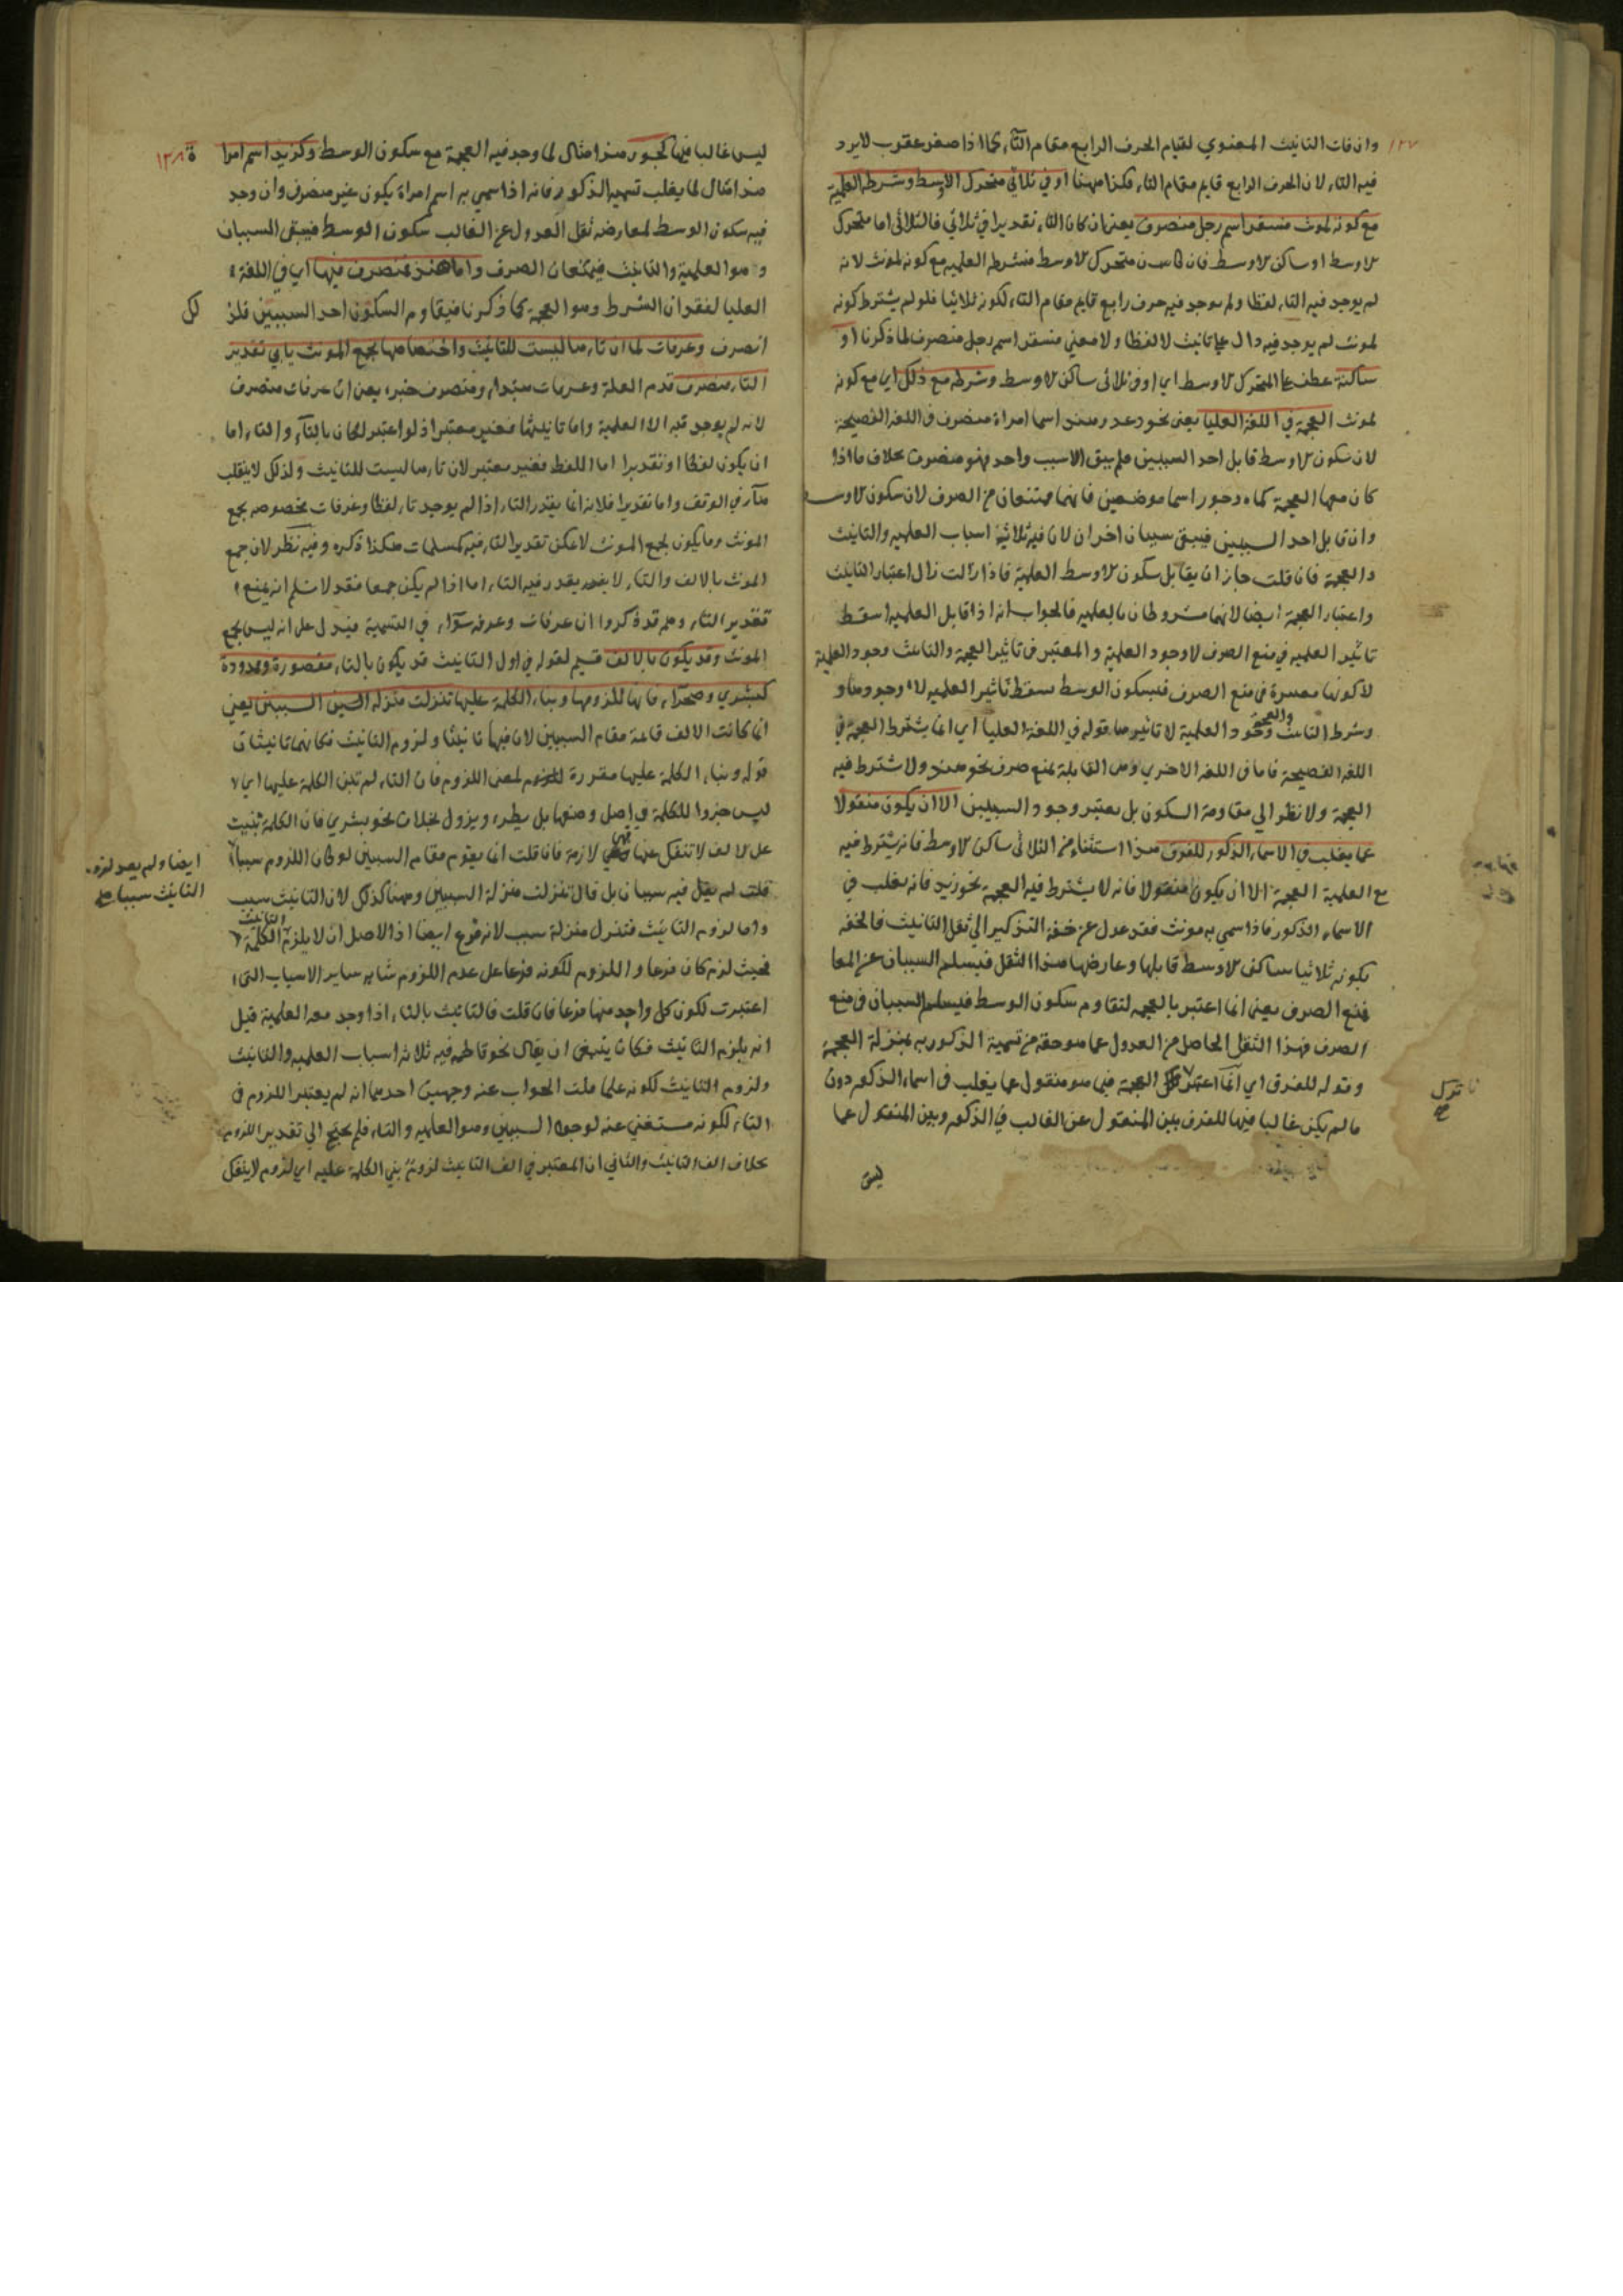 ١٢٧
وان فات التانيث المعنوي لقيام الحرف الرابع مقام التآء كما اذا صغر عقرب لا يرد
فيه التاء لان الحرف الرابع قايم مقام التاء فكذا ههنا او في ثلاثي متحرك الاوسط وشرطه العلمية
مع كونه لمونث فسقر اسم رجل منصرف يعني ان كان التاء تقديرا في ثلاثي فالثلاثي اما متحرك
الاوسط او ساكن الاوسط فان كان متحرك الاوسط فشرطه العلميه مع كونه لمونث لانه
لم يوجد فيه التاء لفظا ولم يوجد فيه حرف رابع قايم مقام التاء لكونه ثلاثيا فلو لم يشترط كونه
لمونث لم يوجد فيه دال على تانيث لا لفظا ولا معني فسقر اسم رجل منصرف لما ذكرنا او
ساكنة عطف على المتحرك الاوسط اي او في ثلاثي ساكن الاوسط وشرطه مع ذلك اي مع كونه
لمونث العجمة في اللغة العليا يعني نحو دعد وهند اسما امراة منصرف في اللغة الفصيحة
لان سكون الاوسط قابل احد السببين فلم يبق الا سبب واحد فهو منصرف بخلاف ما اذا
كان معها العجمة كماه وجور اسما موضعين فانهما ممتنعان من الصرف لان سكون الاوسط
وان قابل احد السببين فيبقى سببان اخران لان فيه ثلاثة اسباب العلميه والتانيث
والعجمة فان قلت جاز ان يقابل سكون الاوسط العلمية فاذا زالت زال اعتبار التانيث
واعتبار العجمة ايضا لانهما مشروطان بالعلميه فالجواب انه اذا قابل العلميه اسقط
تاثير العلميه في منع الصرف لا وجود العلمية والمعتبر في تاثير العجمة والتانيث وجود العلمية
لا كونها معتبرة في منع الصرف فبسكون الوسط سقط تاثير العلميه لا وجودها و
وشرط التانيث والعجمة وجود العلمية لا تاثيرها قوله في اللغة العليا اي انما يشترط العجمة في
اللغة الفصيحة فاما في اللغة الاخري وهي القابلة بمنع صرف نحو هند ولا شترط فيه
العجمة ولا نظر الي مقاومة السكون بل يعتبر وجود السببين الا ان يكون منقولا
عما يغلب في الاسماء الذكور للفرق هذا استثناء من الثلاثي ساكن الاوسط فانه يشترط فيه
مع العلمية العجمة الا ان يكون منقولا فانه لا يشترط فيه العجمة نحو زيد فانه يغلب في
الاسماء الذكور فاذا سمي به مونث فقد عدل عن خفة التذكير الي ثقل التانيث فالخفه
بكونه ثلاثيا ساكن الاوسط قابلها وعارضها هذا الثقل فيسلم السببان عن المعا
فمنع الصرف يعني انما اعتبر بالعجمه لتقاوم سكون الوسط فيسلم السببان في منع
الصرف فهذا الثقل الحاصل من العدول عما هو حقه من تسمية الذكور به بمنزلة العجمة
وقوله للفرق اي انما اعتبر العجمة فيما هو منقول عما يغلب في اسماء الذكور دون
ما لم يكن غالبا فيها للفرق بين المنقول عن الغالب في الذكور وبين المنقول عما
ترك
ليس
١٢٨
ليس غالبا فيها كجور هذا مثال لما وجد فيه العجمة مع سكون الوسط وكزيد اسم امراة
هذا مثال لما يغلب تسميه الذكور فانه اذا سمي به اسم امراة يكون غير منصرف وان وجد
فيه سكون الوسط لمعارضه ثقل العدول عن الغالب سكون الوسط فيبقى السببان
وهو العلمية والتانيث فيمنعان الصرف واما هند فمنصرف فيها اي في اللغة
العليا لفقدان الشرط وهو العجمة كما ذكرنا فيقاوم السكون احد السببين فلذلك
انصرف وعرفات لما ان تاءها ليست للتانيث واختصاصها بجمع المونث يابي تقدير
التاء منصرف قدم العلة وعرفات مبتدا ومنصرف خبره يعني ان عرفات منصرف
لانه لم يوجد فيه الا العلمية واما تانيثها فغير معتبر اذ لو اعتبر لكان بالتآء والتاء اما
ان يكون لفظا او تقديرا اما اللفظ فغير معتبر لان تاءها ليست للتانيث ولذلك لا ينقلب
هآء في الوقف واما تقديرا فلانه انما يقدر التاء اذا لم يوجد تاء لفظا وعرفات مخصوصه بجمع
المونث وما يكون لجمع المونث لا يمكن تقدير التاء فيه كمسلمات هكذا ذكره وفيه نظر لان جمع
المونث بالالف والتاء لا يقدر فيه التاء اما اذا لم يكن جمعا فقد لا نسلم انه يمنع
تقدير التاء وهم قد ذكروا ان عرفات وعرفه سوآء في التسمية فيدل على انه ليس بجمع
المونث وقد يكون بالالف قسيم لقوله في اول التانيث قد يكون بالتاء مقصورة وممدودة
كبشري وصحرآء فانها للزومها وبناء الكلمة عليها تنزلت منزلة السببين يعني
انما كانت الالف قائمة مقام السببين لان فيها تانيثا ولزوم التانيث فكانهما تانيثان
قوله وبناء الكلمة عليها مقررة لمعنى اللزوم فان التاء لم تبن الكلمة عليها اي لا
ليس جزوا للكلمة في اصل وضعها بل يطرء ويزول بخلاف نحو بشري فان الكلمة بنيت
على الالف لا تنفك عنها فهي لازمة فان قلت انما يقوم مقام السببين لو كان اللزوم سببا
ايضا ولم يعد لزوم
التانيث سببا صح
قلت لم يقل فيه سببان بل قال تنزلت منزلة السببين وههنا كذلك لان التانيث سبب
واما لزوم التانيث فتنزل منزلة سبب لانه فرع ايضا اذ الاصل ان لا يلزم التانيث الكلمة
فحيث لزم كان فرعا واللزوم لكونه فرعا على عدم اللزوم شابه ساير الاسباب التي
اعتبرت لكون كل واحد منها فرعا فان قلت فالتانيث بالتاء اذا وجد معه العلمية قيل
انه يلزم التانيث فكان ينبغي ان يقال نحو فاطمة فيه ثلاثه اسباب العلميه والتانيث
ولزوم التانيث لكونه علما قلت الجواب عنه وجهين احدهما انه لم يعتبر اللزوم في
التاء لكونه مستغني عنه لوجود السببين وهو العلميه والتاء فلم يحتج الي تقدير اللزوم
بخلاف الف التانيث والثاني ان المعتبر في الف التانيث لزوم بني الكلمة عليه اي لزوم لا ينفك